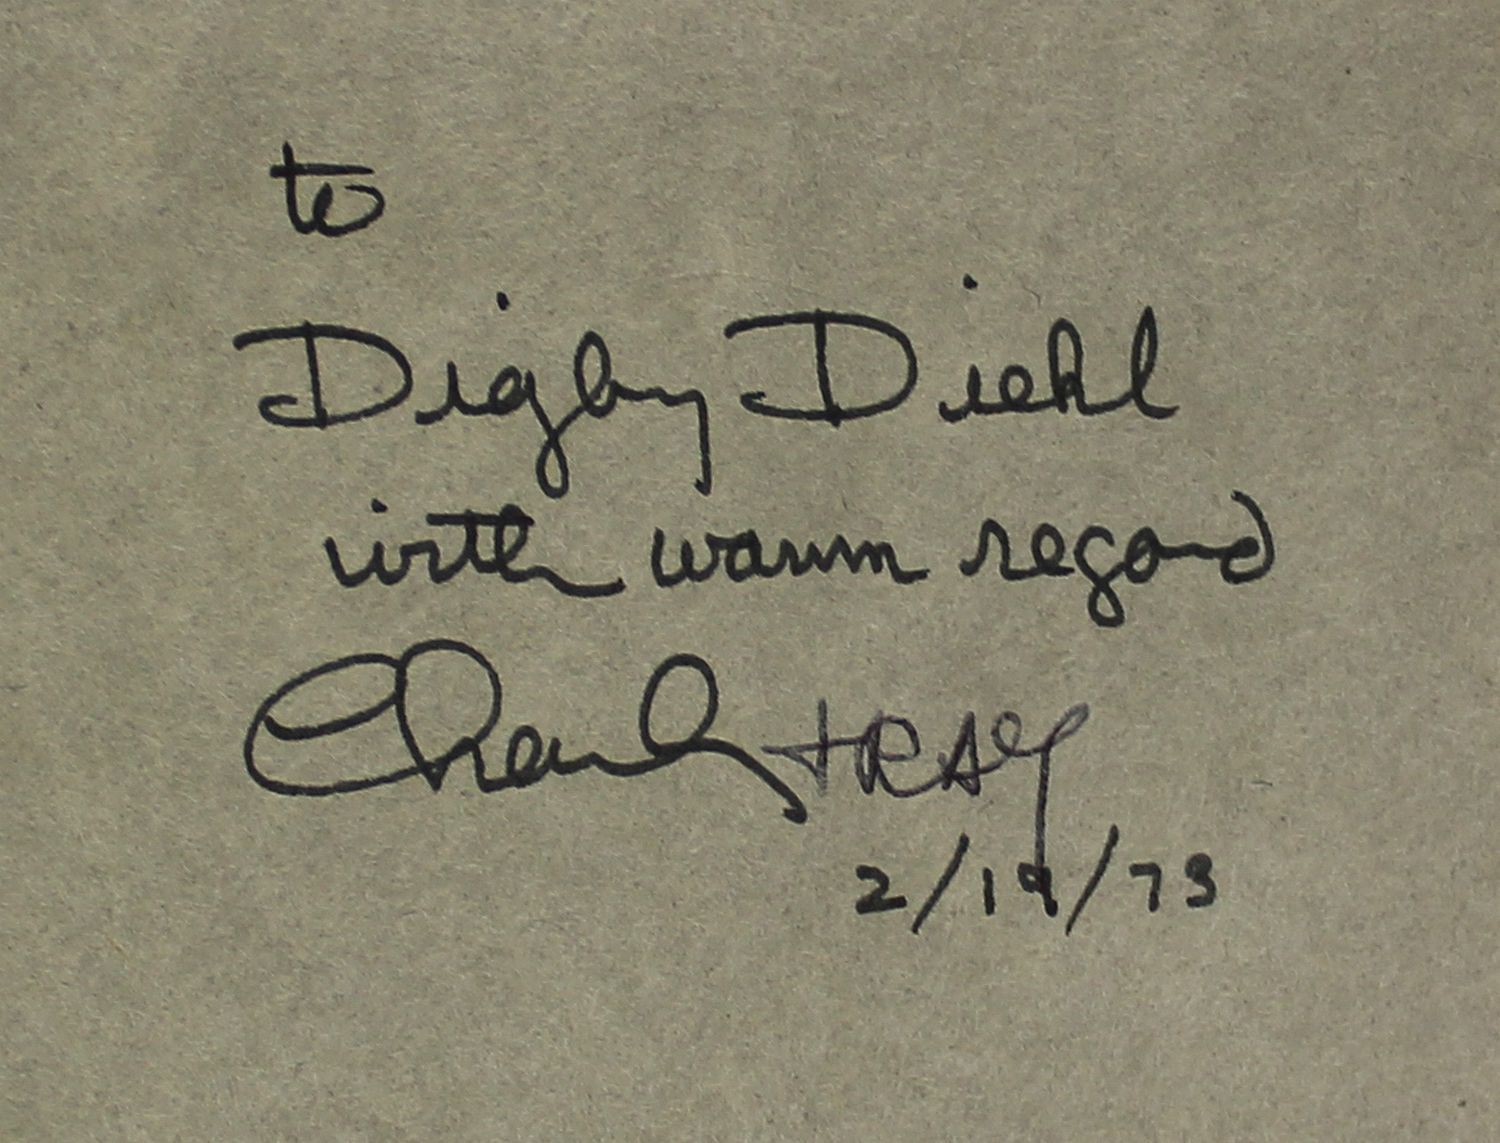 to
Digby Diehl
with warm regard
Charles + RAY
2/19/73